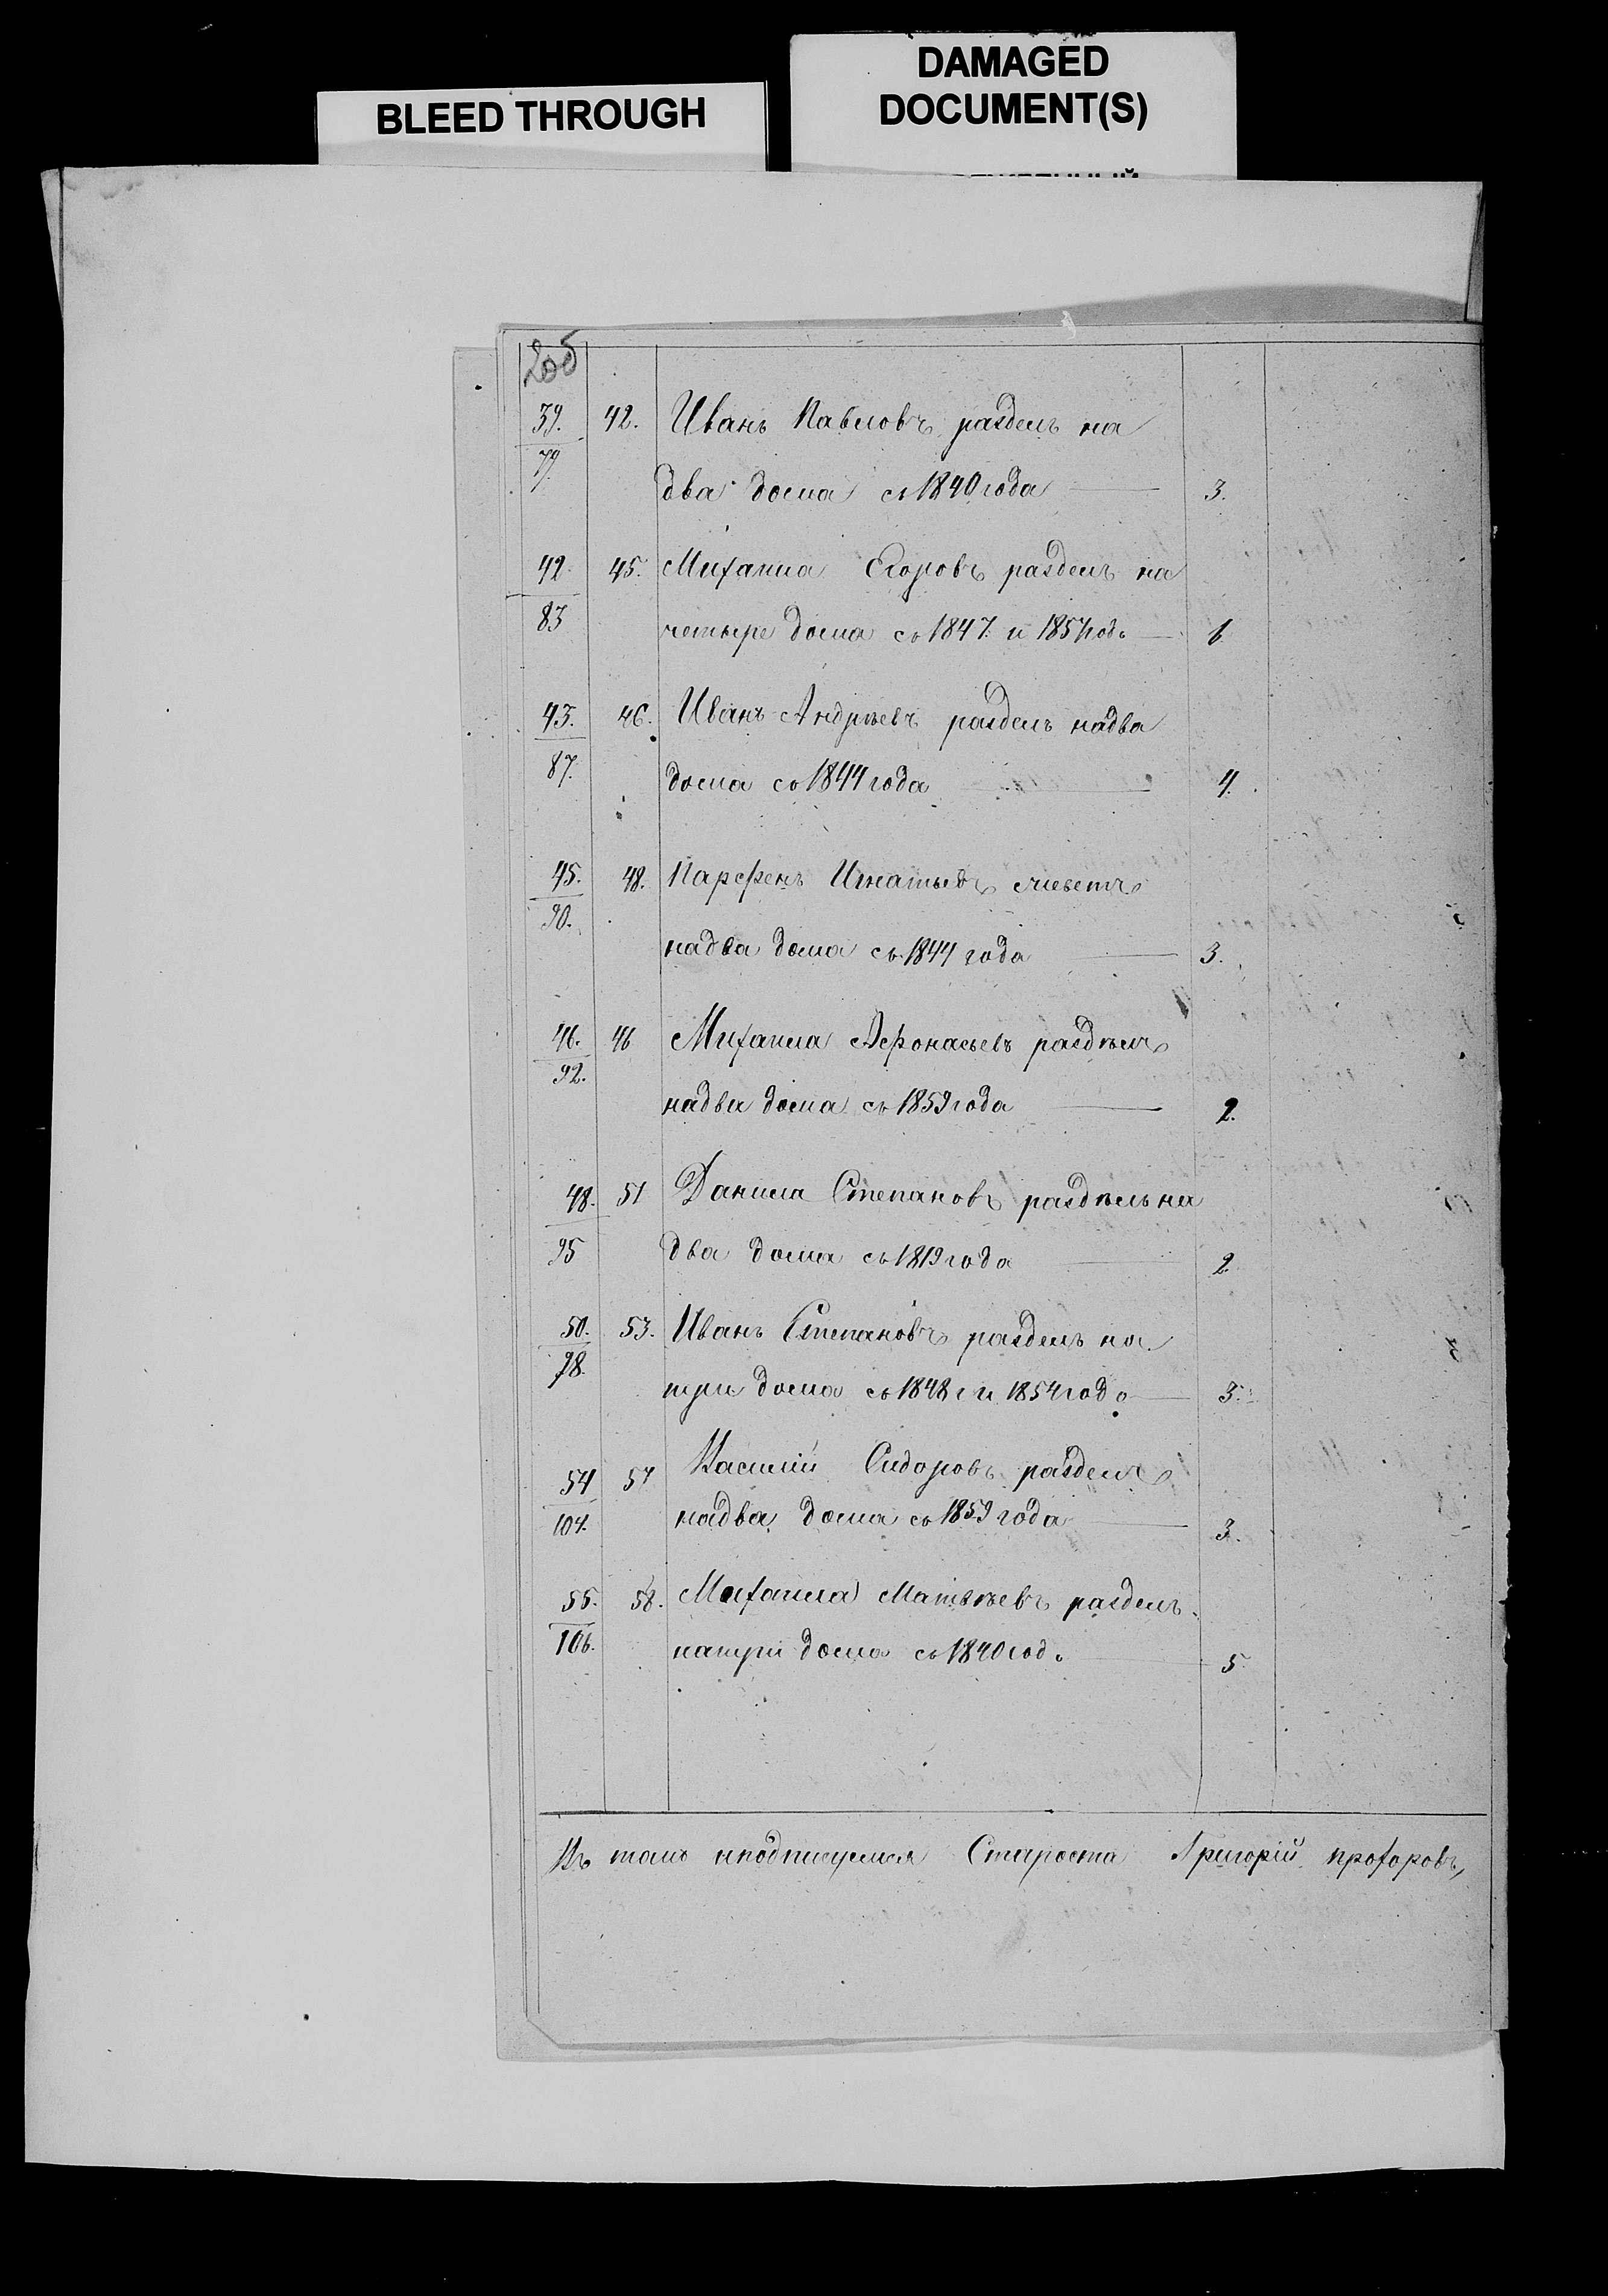 BLEED THROUGH
DAMAGED
DOCUMENT(S)
205
39. 42. Иванъ Павловъ раздель на
79. два дома съ 1840 года — 3.
42. 45. Михаила Егоровъ раздель на
83 четыре дома съ 1847. и 1857 год. — 6
43. 46. Иванъ Андрѣевъ раздель надва
87. дома со 1844 года — 4.
45. 48. Парфенъ Игнатьевъ
90. надва дома съ 1844 года — 3.
46. 46 Михаила Афонасьевъ раздѣлъ
92. надва дома съ 1859 года — 2.
48. 51 Данила Степановъ раздѣль на
95 два дома съ 1819 года — 2.
50. 53. Иванъ Степановъ раздель на
98. три дома съ 1848 г и 1854 год — 3.
54 57 Василий Сидоровъ раздель
104. надва дома со 1859 года — 3.
55. 58. Михаила Матвѣевъ раздель
106. натри дома съ 1840 год. — 5
Въ томъ иподписуемся Староста Григорій прохоровъ,